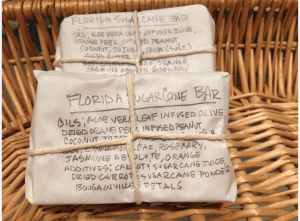 FLORIDA SUGARCANE BAR
OILS, ALOE VERA INFUSED OLIVE,
ORANGE PEEL INFUSED PEANUT,
COCONUT, JOJOBA, PALM (Sust.)
ORANGE,
ROSEMARY
FLORIDA SUGARCANE BAR
OILS; ALOE VERA LEAF INFUSED OLIVE
DRIED ORANGE PEEL INFUSED PEANUT,
COCONUT
LEAF, ROSEMARY,
JASMINE ABSOLUTE, ORANGE
ADDITIVES; CARROTS, SUGARCANE JUICE,
DRIED CARROT & SUGARCANE POWDER
BOUGAINVILLEA PETALS